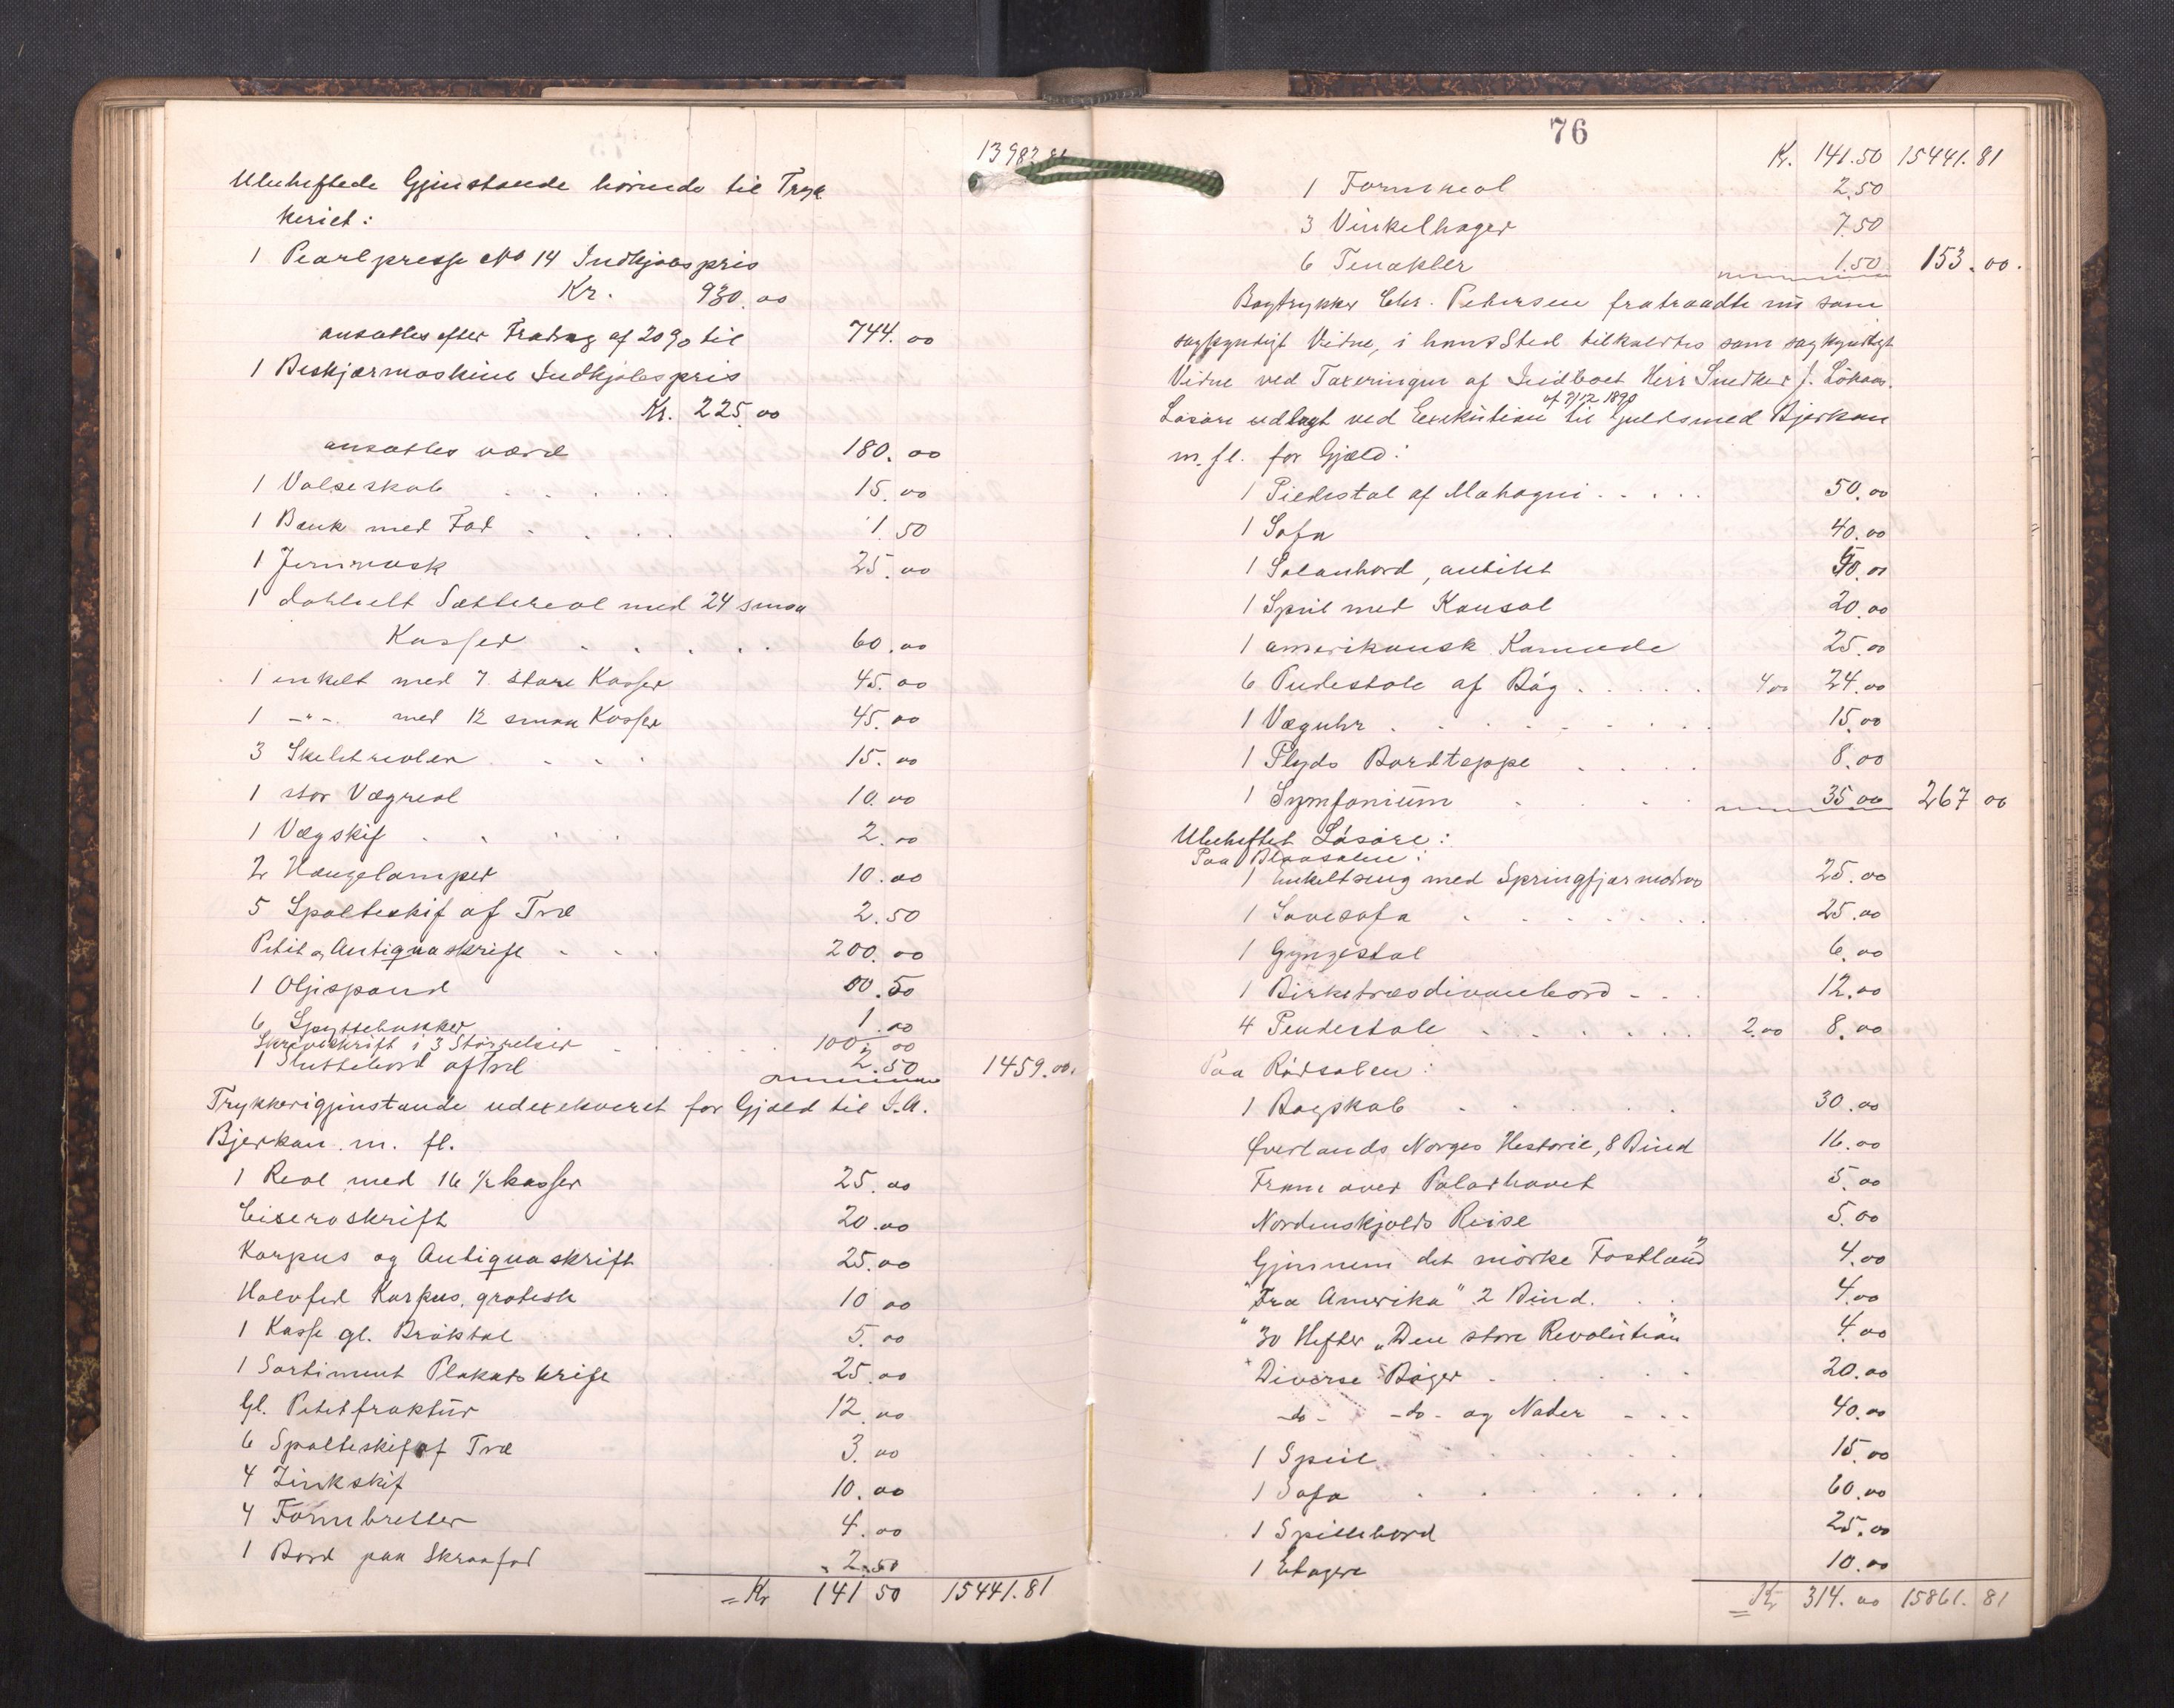 13982.81
Ubeheftede Gjenstande hørende til Tryk
keriet:
1 Pearlpresse No 14 Indkjøbspris
Kr. 930.00
ansattes efter Fradrag af 20% til 744.00
1 Beskjærmaskine Indkjøbspris
Kr. 225.00
ansattes værd 180.00
1 Valseskab 15.00
1 Bænk med Fod 1.50
1 Jernvask 25.00
1 dobbelt Sættereol med 24 smaa
Kasser 60.00
1 enkelt med 7 store Kasser 45.00
1 -"- med 12 smaa Kasser 45.00
3 Skeletreoler 15.00
1 stor Vægreol 10.00
1 Vægskif 2.00
2 Hængelamper 10.00
5 Spalteskif af Træ 2.50
Petit og Antiquaskrift 200.00
1 Oljespand 00.50
6 Spyttebakker 1.00
Skriveskrift i 3 Størrelser 100.00
1 Sluttebord af Træ 2.50 1459.00.
Trykkerigjenstande udexekveret for Gjæld til I.A.
Bjerkan m. fl.
1 Reol med 16 1/2 kasser 25.00
Ciseroskrift 20.00
Korpus og Antiquaskrift 25.00
Halvfed Korpus, grotesk 10 00
1 Kasse gl. Brøktal 5.00
1 Sortiment Plakatskrift 25.00
Gl. Petitfraktur 12.00
6 Spalteskif af Træ 3.00
4 Zinkskif 10.00
4 Formbretter 4.00
1 Bord paa Skraafod 2.50
= Kr 141 50 15441.81
76
Kr. 141.50 15441.81
1 Formreol 2.50
3 Vinkelhager 7.50
6 Tenakler 1.50 153.00.
Bogtrykker Chr. Petersen fratraadte nu som
sagkyndigt Vidne, i hans Sted tilkaldtes som sagkyndigt
Vidne ved Taxeringen af Indboet Herr Snedker J. Løkaas.
Løsøre udlagt ved Exekution af 7/12 1890 til Guldsmed Bjerkan
m. fl. for Gjæld:
1 Piedestal af Mahogni 50.00
1 Sofa 40.00
1 Salonbord, antikt 50.00
1 Speil med Konsol 20.00
1 amerikansk Komode 25.00
6 Pudestole af Bøg 4 00 24.00
1 Væguhr 15.00
1 Plyds Bordteppe 8.00
1 Symfonium 35.00 267 00
Ubeheftet Løsøre:
Paa Blaasalen:
1 Enkeltseng med Springfjærmadras 25.00
1 Sovesofa 25.00
1 Gyngestol 6.00
1 Birketræsdivanbord 12.00
4 Pendestole 2.00 8.00
Paa Rødsalen:
1 Bogskab 30.00
Øverlands Norges Historie, 8 Bind 16.00
Fram over Polarhavet 5.00
Nordenskjølds Reise 5.00
Gjennem det mørke Fastland" 4.00
"Fra Amerika" 2 Bind. 4.00
" 30 Hefter „Den store Revolution" 4.00
Diverse Bøger 20.00
-do- -do- og Noder 40.00
1 Speil 15.00
1 Sofa 60.00
1 Spillebord 25.00
1 Etagere 10.00
= Kr 314.00 15861.81